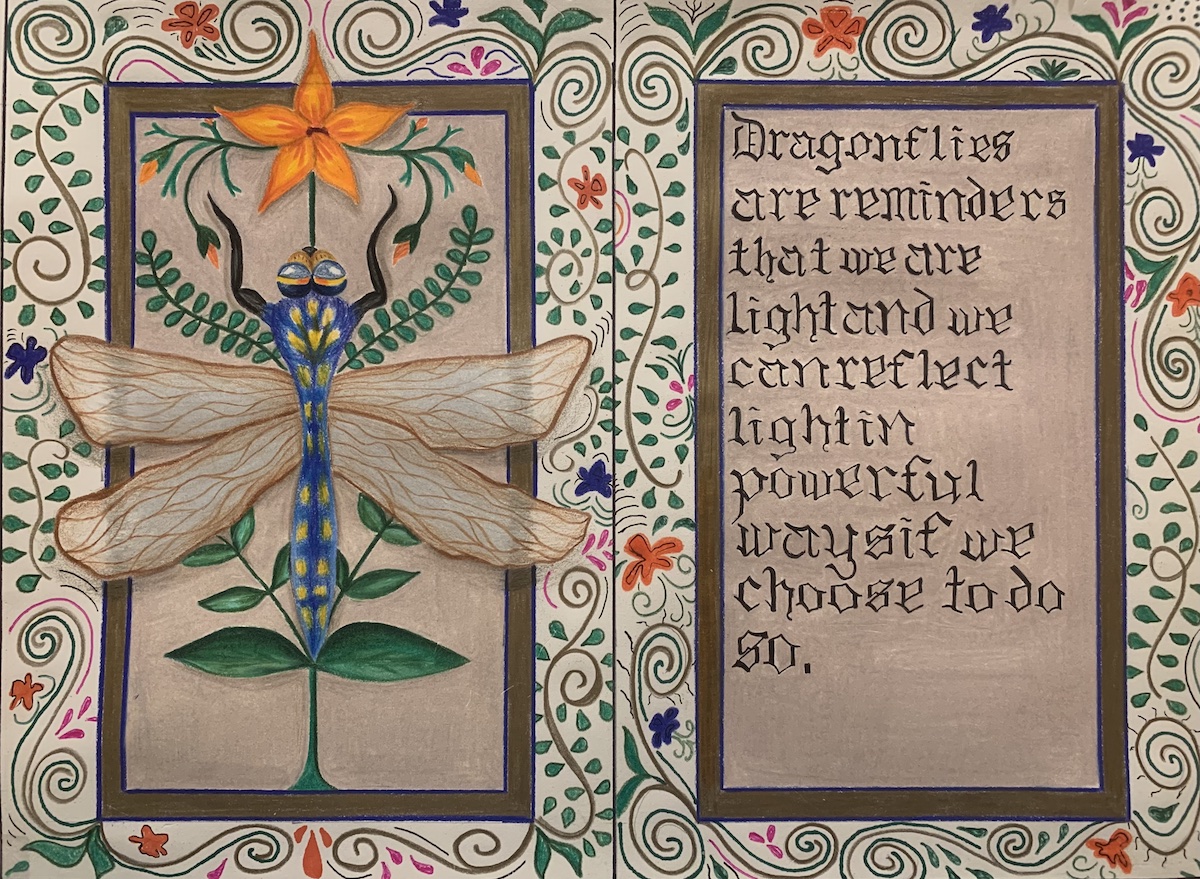 Dragonflies
are reminders
that we are
light and we
can reflect
light in
powerful
ways if we
choose to do
so.